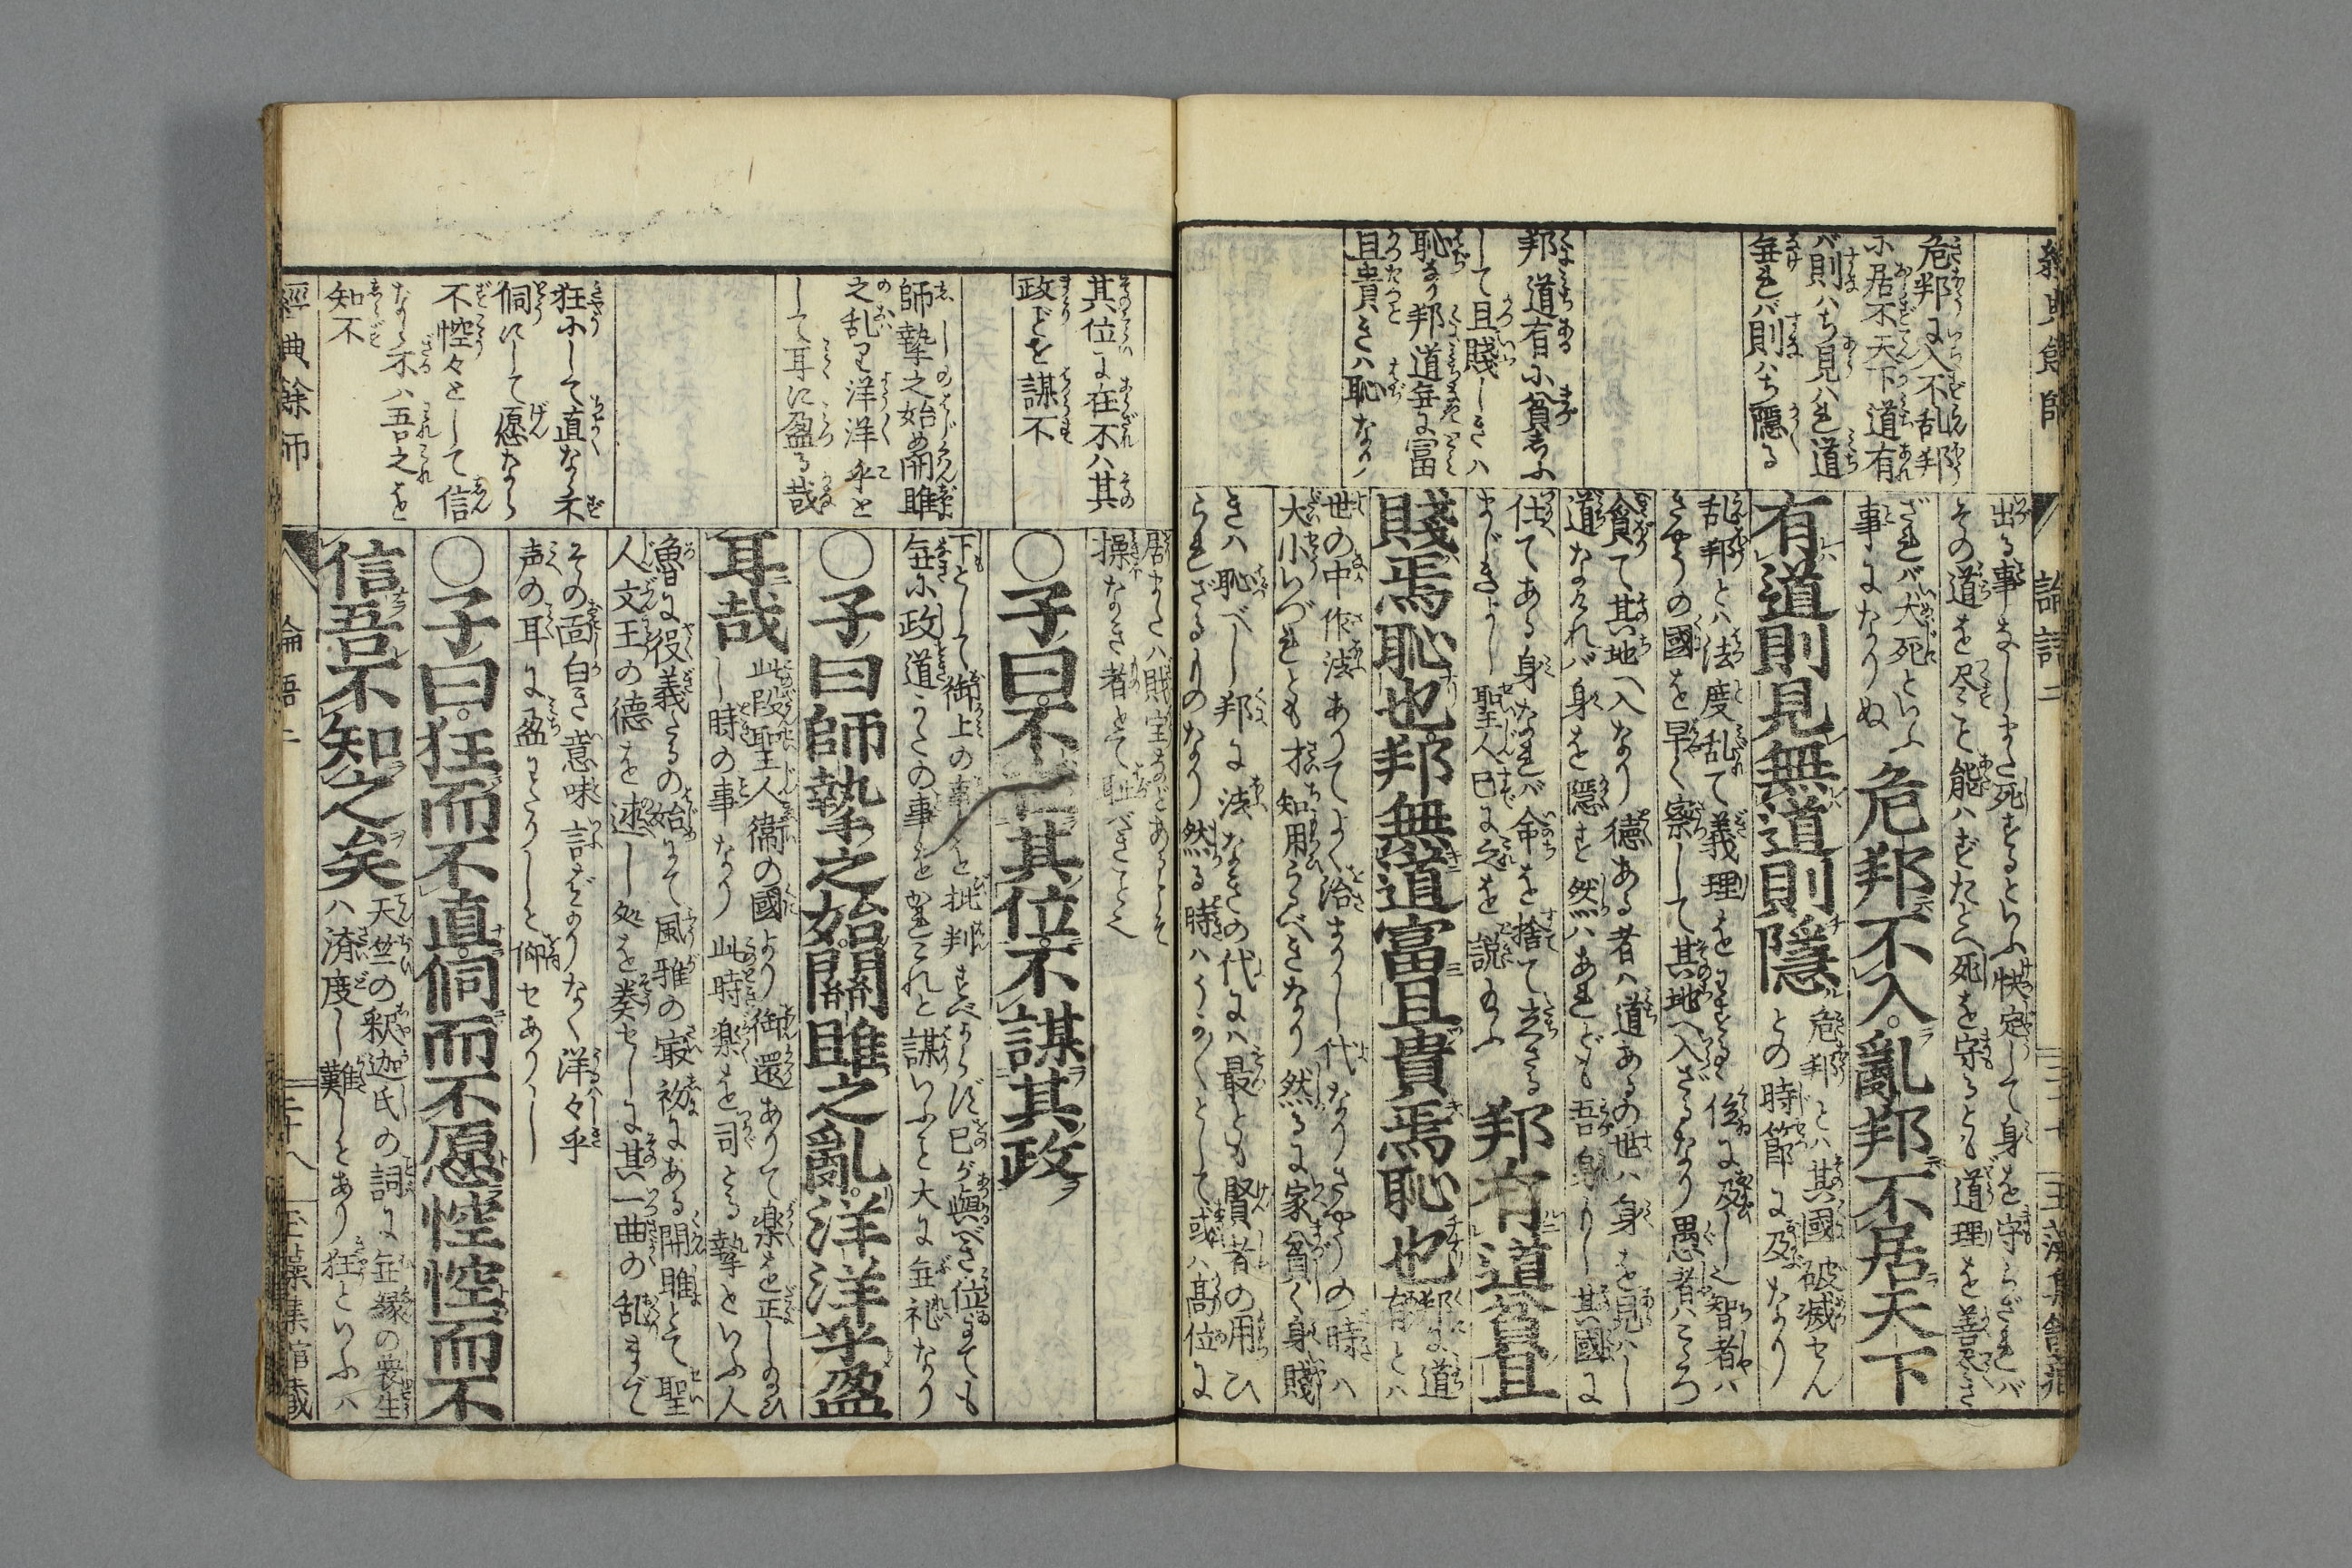 經典餘師
危邦に入不乱邦
に居不天下道有
バ則ハち見ハれ道
無れバ則ハち隠る
邦道有に貧しふ
して且賤しきハ
恥なり邦道無に富
且貴きハ恥なり
論語二
出る事なしまた死するといふ決定して身を守らざれバ
その道を尽こと能ハずたとへ死を守るとも道理を善尽さ
ざれバ犬死といふ
事になりぬ
危邦不入。亂邦不居天下
有道則見無道則隱
危邦とハ其國破滅せん
との時節に及なり
乱邦とハ法度乱て義理を
きやうの國を早く察して其地へ入ざるなり愚者ハころつ
貪て其地へ入なり徳ある者ハ道あるの世ハ身を見ハし
道なければ身を隠す然ハあれども吾身もし其國に
仕てある身なれバ命を捨て立さる
まじきよし聖人已に之を説玉ふ
邦有道貧且
賤焉恥也。邦無道富且貴焉恥也
邦に道
有とハ
世の中作法ありてよく治まりし代なりさやうの時ハ
大小いづれとも才知用らるべきなり然るに家貧く身賤
きハ恥べし邦に法なきの代にハ最とも賢者の用ひ
られざるものなり然る時ハうかくとして或ハ高位に
其位に在不ハ其
政ごとを謀不
師摯之始め關雎
之乱り洋洋乎と
して耳に盈る哉
狂にして直なら不
侗にして愿なら
不悾々として信
なら不ハ吾之を
知不
居またハ財宝などあるとそ
操なき者とて耻べきことと
○子曰。不在其位。不謀其政
下として御上の事を批判すべからず已が與べき位にても
無に政道かたの事をかれこれと謀いふと大に無礼なり
○子曰師摯之始。關雎之亂。洋洋乎盈
耳哉
此段聖人衛の國より御還ありて楽を正しのひ
し時の事なり此時楽を司とる摯といふ人
魯に役義たるの始にて風雅の最初にある關雎とて聖
人文王の徳を述し処を奏せしに其一曲の乱まで
その面白き意味言ばかりなく洋々乎
声の耳に盈にたりしと仰せありし
○子曰。狂而不直。侗而不愿悾悾而不
信吾不知之矣
天竺の釈迦氏の詞に無縁の衆生
ハ済度し難しとあり狂といふハ
經典餘師
論語二
二十八